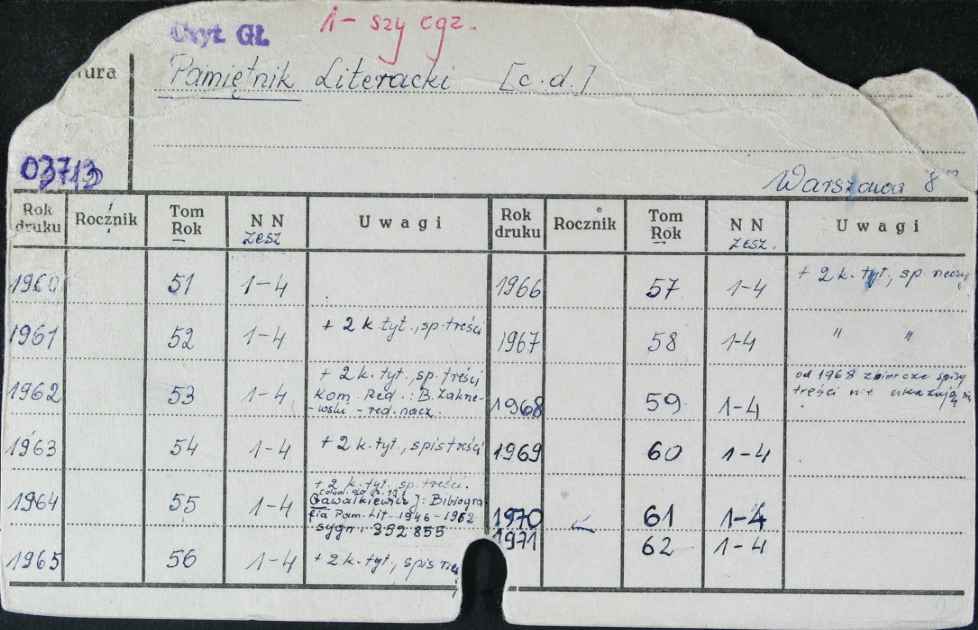 i-szy egz.
Czyt. Gł.
ura
Pamiętnik Literacki [c.d.]
03713
Warszawa 8°
Rok druku Rocznik Tom Rok N N Uwagi Rok druku Rocznik Tom Rok N N Uwagi
zesz zesz.
1960 51 1-4 1966 57 1-4 + 2 k. tyt., sp. rzeczy
1961 52 1-4 + 2 k tyt., sp. treści 1967 58 1-4 " "
1962 53 1-4 + 2 k. tyt., sp. treści
Kom. Red.: B. Zakrze-
-wski - red. nacz.
1968 59 1-4 od 1968 zbiorcze spisy
treści nie ukazują się
1963 54 1-4 + 2 k. tyt., spis treści 1969 60 1-4
1964 55 1-4 + 2 k. tyt., sp. treści.
[Gawałkiewicz]: Bibiogra-
fia Pam. Lit. 1946-1962
sygn. 352 855
1970 61 1-4
1971 62 1-4
1965 56 1-4 + 2 k. tyt., spis